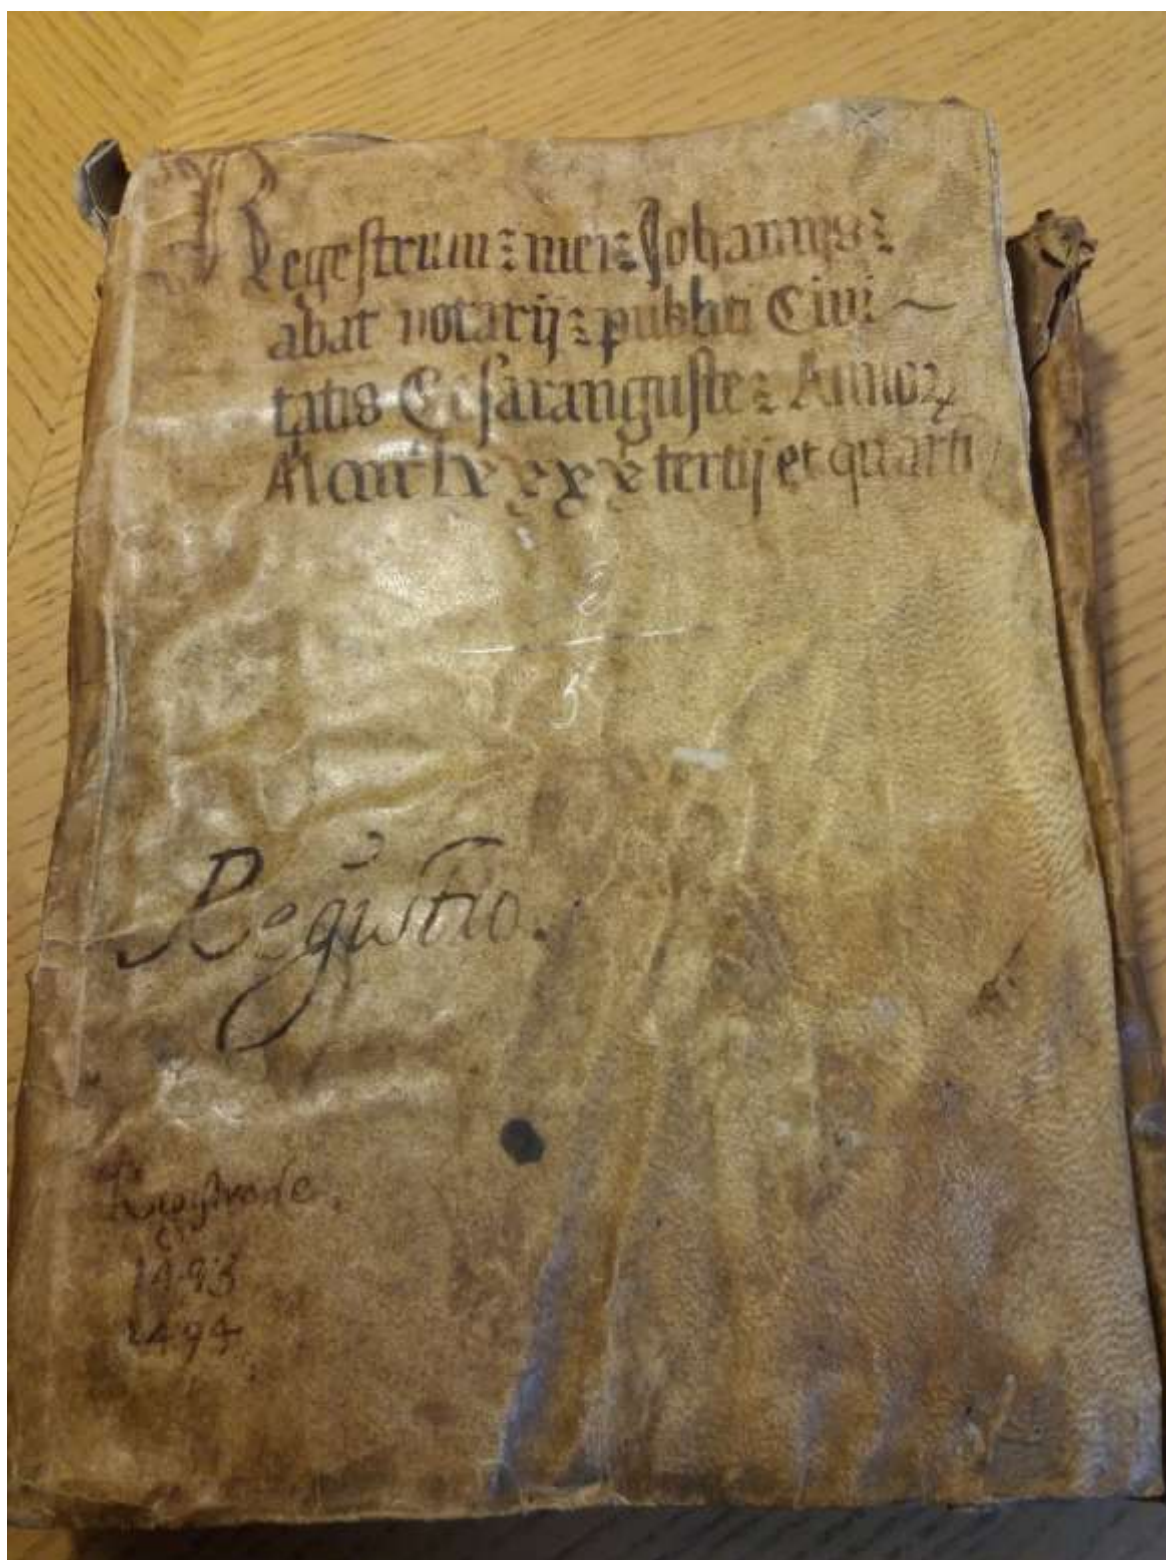 Regestrum mei Johannis
abat notarij publici Civi
tatis Cesarauguste Annoꝝ
Mcccclxxxx tertij et quarti
Registro.
Registro de
1493
1494